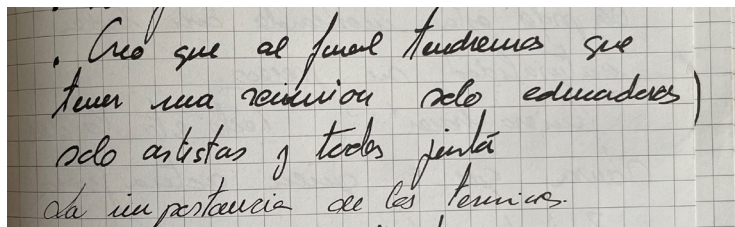 . Creo que al final tendremos que
tener una reunion solo educadores)
solo artistas y todos junta
La importancia de los terminos.